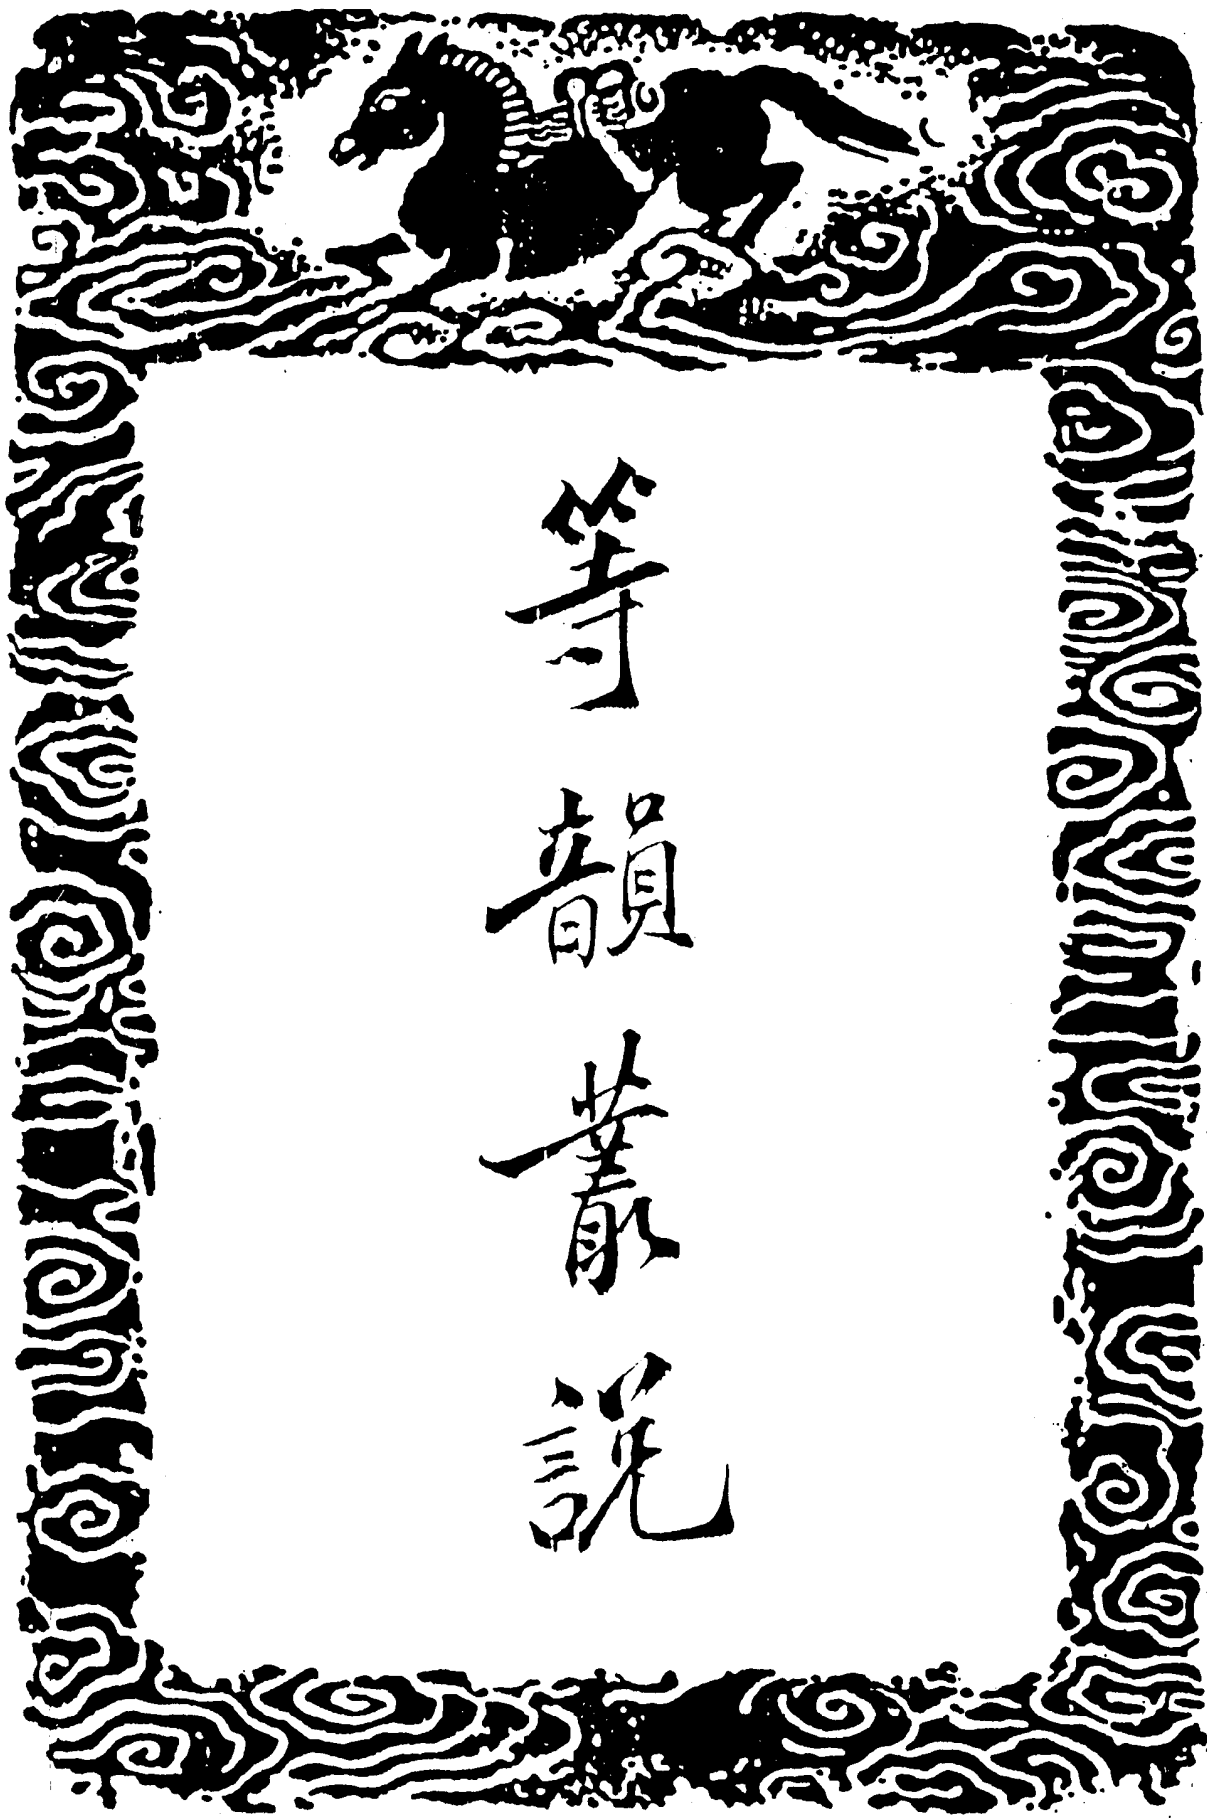 等韻叢說